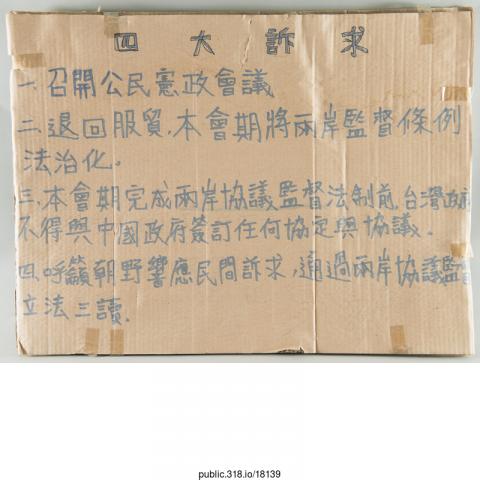 四大訴求
一.召開公民憲政會議
二.退回服貿,本會期將兩岸監督條例
法治化。
三.本會期完成兩岸協議監督法制前,台灣政府
不得與中國政府簽訂任何協定與協議.
四.呼籲朝野響應民間訴求,通過兩岸協議監督
立法三讀.
public.318.io/18139